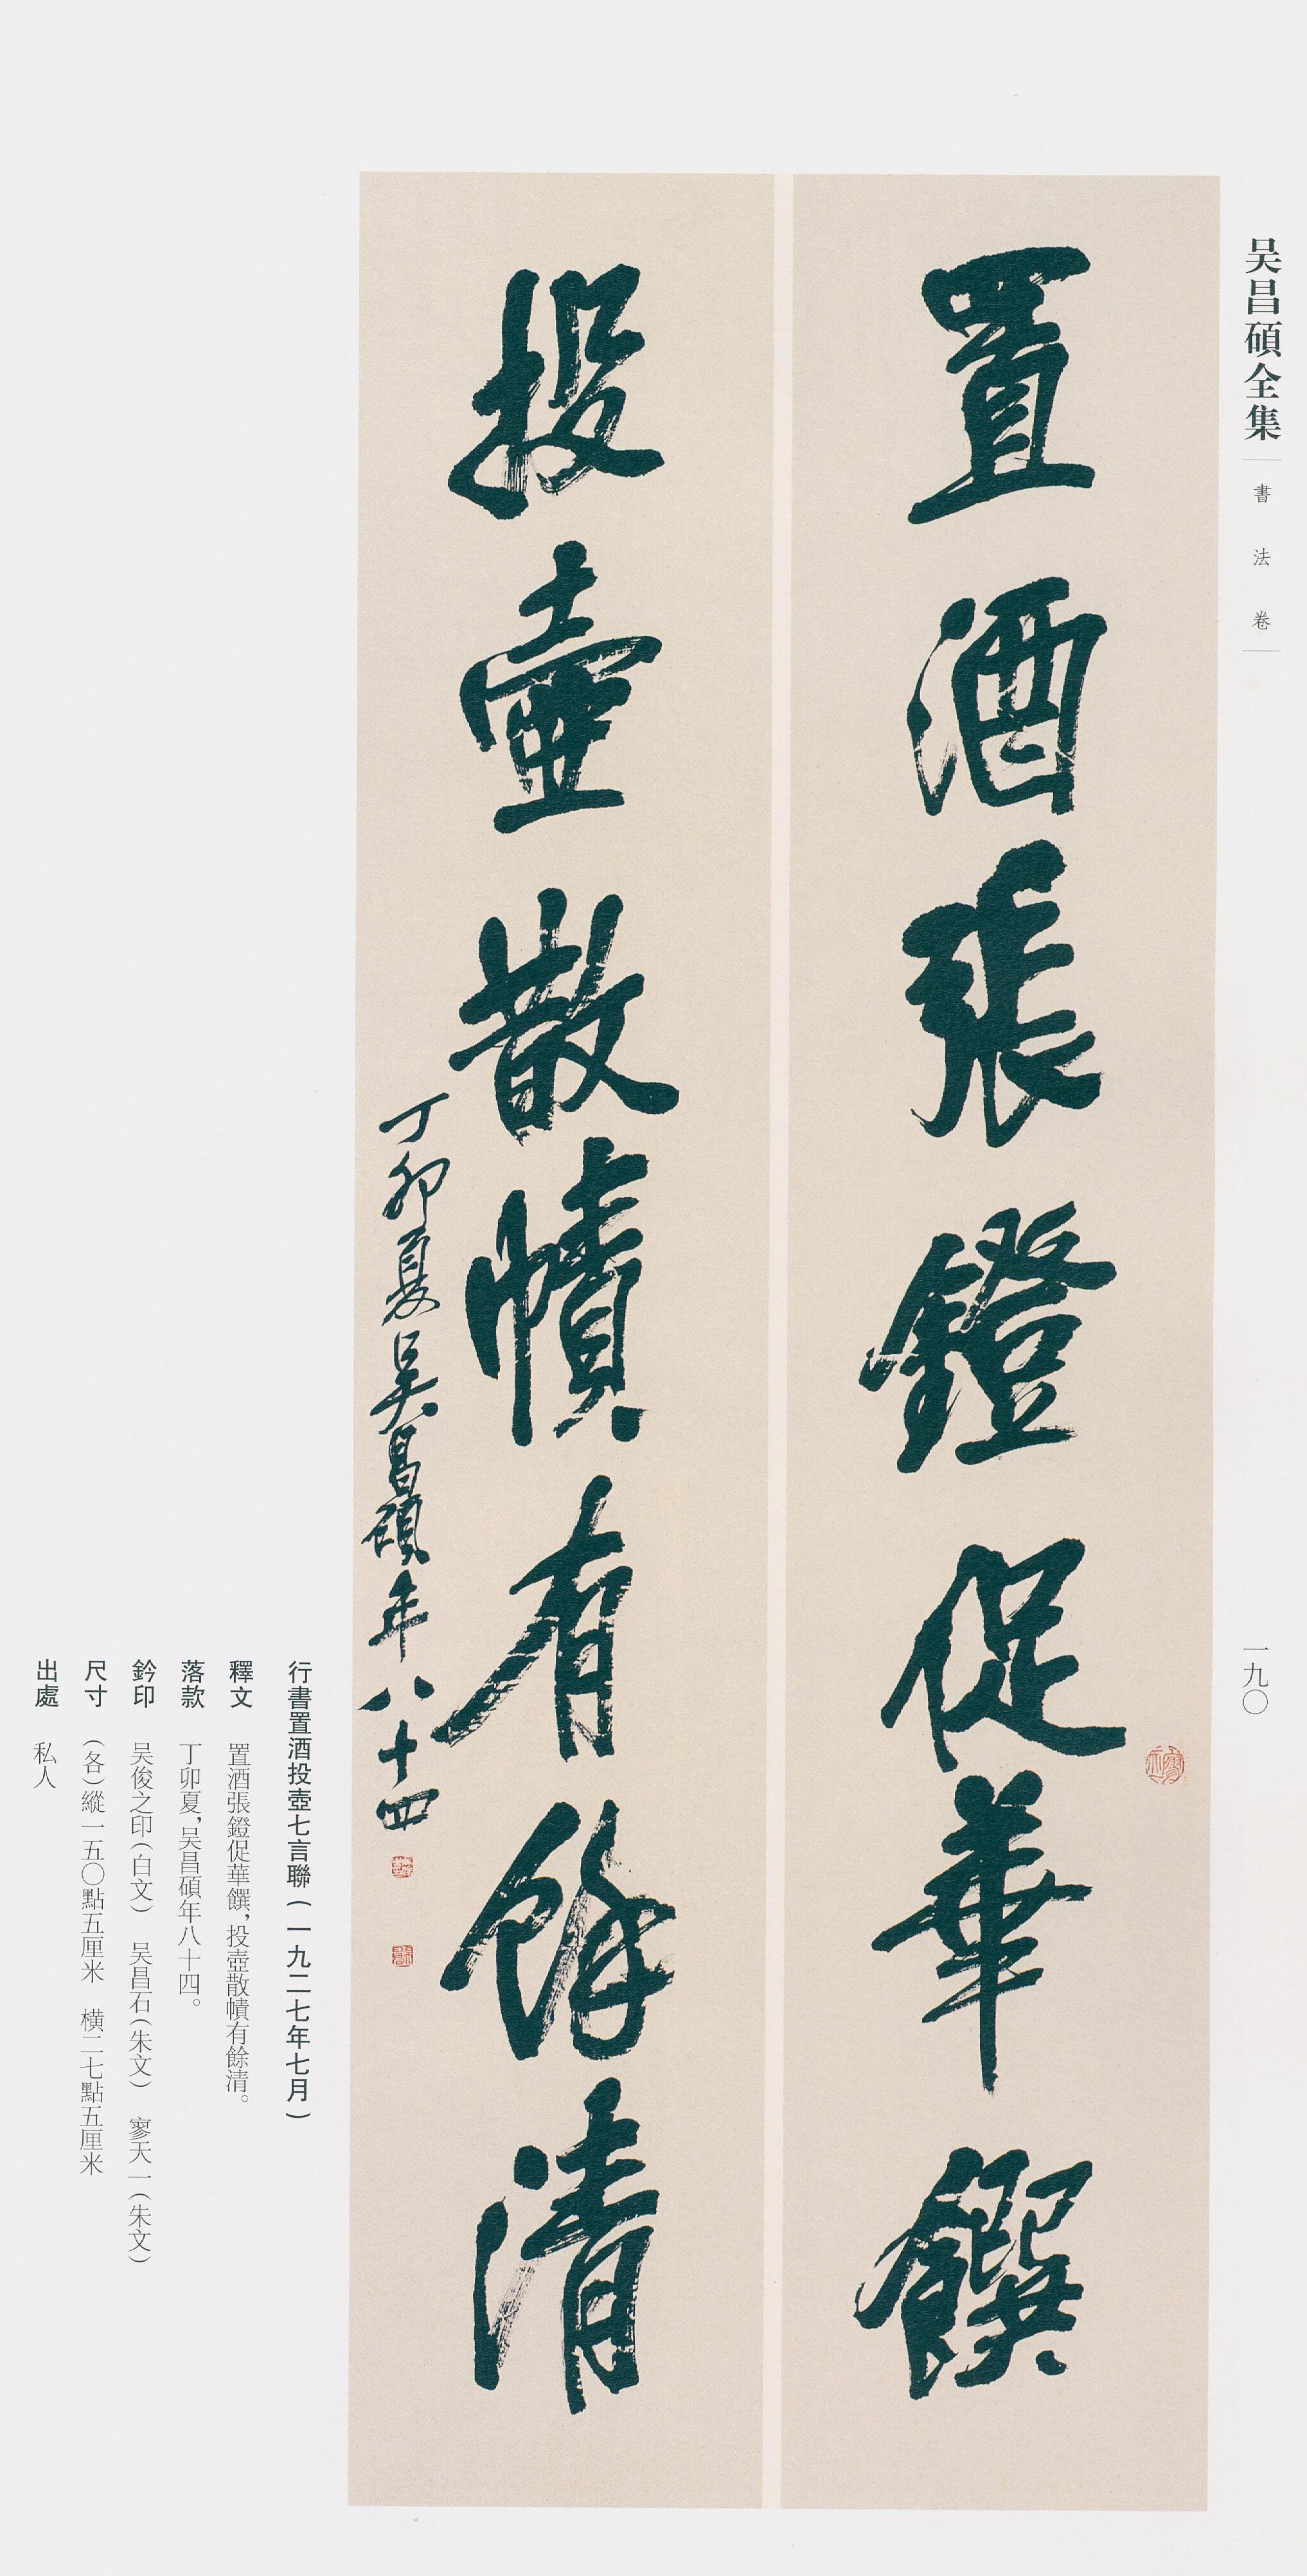 吴昌碩全集
書法卷
一九〇
置酒張鐙促華饌
投壺散幘有餘清
丁卯夏吴昌碩年八十四
行書置酒投壺七言聯（一九二七年七月）
釋文　置酒張鐙促華饌，投壺散幘有餘清。
落款　丁卯夏，吴昌碩年八十四。
鈐印　吴俊之印（白文）　吴昌石（朱文）　寥天一（朱文）
尺寸　（各）縱一五〇點五厘米　横二七點五厘米
出處　私人